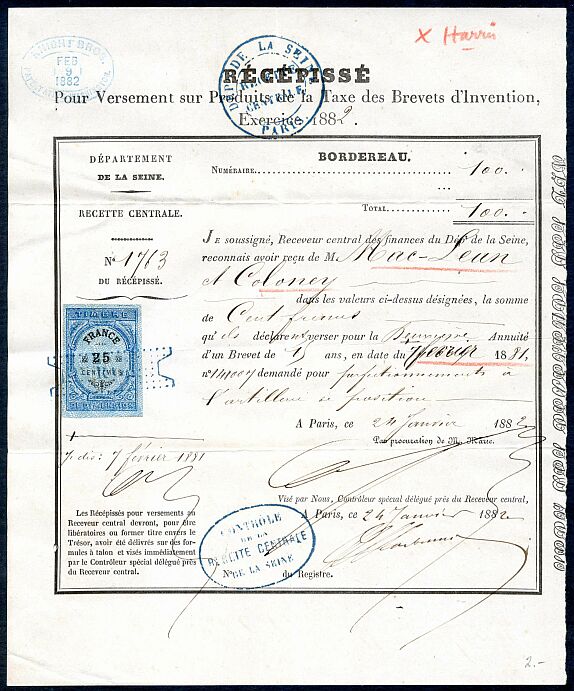 FEB
9
1882
X Harris
DÉPT DE LA SEINE
RECETTE
CENTRALE
PARIS
RÉCÉPISSÉ
Pour Versement sur Produits de la Taxe des Brevets d'Invention,
Exercice 1882.
DÉPARTEMENT
DE LA SEINE.
RECETTE CENTRALE.
N° 1763
DU RÉCÉPISSÉ.
BORDEREAU.
NUMÉRAIRE 100.
TOTAL 100.
JE soussigné, Receveur central des finances du Dépt de la Seine,
reconnais avoir reçu de M. Mac-Leun
et Coloney
dans les valeurs ci-dessus désignées, la somme
de Cent francs
qu'ils déclarent verser pour la Deuxième Annuité
d'un Brevet de 15 ans, en date du 7 février 1881,
n° 141007 demandé pour perfectionnements à
l'artillerie de position
A Paris, ce 24 Janvier 1882
Par procuration de M. Marc.
TIMBRE
FRANCE
25
CENTIMES
7 février 1881
Visé par Nous, Contrôleur spécial délégué près du Receveur central,
A Paris, ce 24 Janvier 1882
du Registre.
Les Récépissés pour versements au
Receveur central devront, pour être
libératoires ou former titre envers le
Trésor, avoir été délivrés sur des for-
mules à talon et visés immédiatement
par le Contrôleur spécial délégué près
du Receveur central.
CONTRÔLE
DE LA
RECETTE CENTRALE
N° DE LA SEINE
2.-